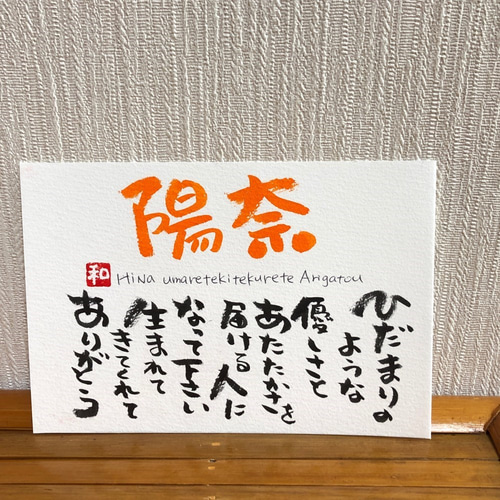 陽奈
和
HiNa umaretekitekurete Arigatou
ひだまりの
ような
優しさと
あたたかさを
届ける人に
なって下さい
生まれて
きてくれて
ありがとう